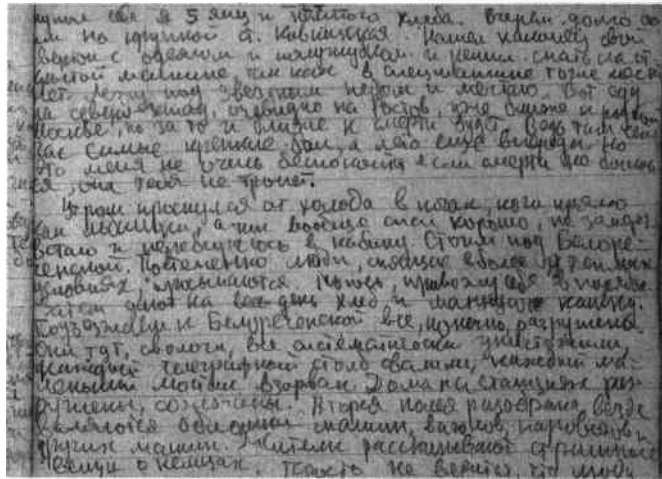 купил себе я 5 яиц и немного хлеба. Вчера долго сто
ял на крупной ст. Кавказская. Нашел наконец свой
с одеялом и и решил спать на от
крытой машине, так как в спецмашине тоже мест
нет. Лежу под звездным небом и мечтаю. Вот еду
на северо-запад, очевидно на Ростов, уже ближе к родной
Москве, но за то и ближе к смерти будет. Ведь там сей
час самые крепкие бои, а лето еще впереди. Но
это меня не очень беспокоит если смерти не боишь
ся, она тебя не тронет.
Утром проснулся от холода в ногах, ноги прямо
как ледышки, а так вообще спал хорошо, не замерз
встаю и перебираюсь в кабину. Стоим под Белоре-
ченской. Постепенно люди, спящие в более теплых
условиях, просыпаются. Моюсь, привожу себя в порядок
Затем дают на весь день хлеб и манную кашу.
Подъезжаем к Белореченской все, конечно, разрушено.
Они тут, сволочи, все систематически уничтожили,
каждый телеграфный столб свалили, каждый ма-
ленький мостик взорван. Дома на станциях раз
рушены, сожжены. Вторая колея разобрана, везде
валяются обломки машин, вагонов, паровозов и
других машин. Жители рассказывают страшные
вещи о немцах. Просто не верится, что люди